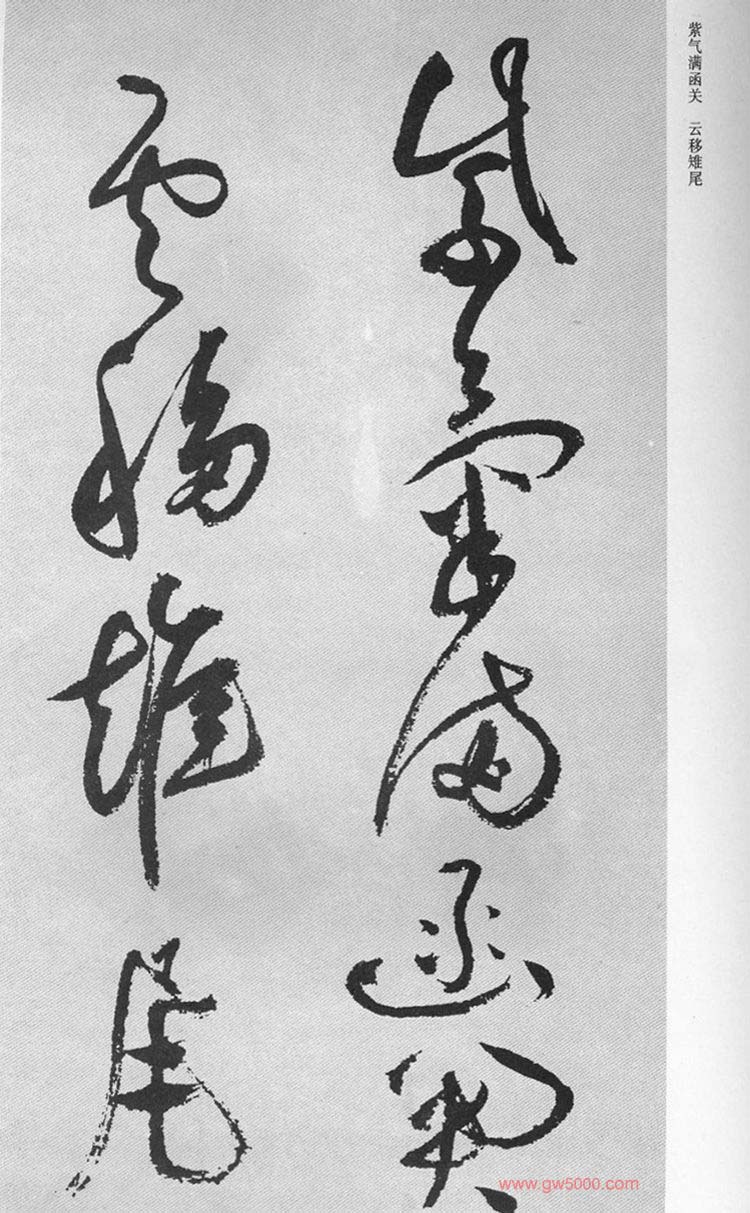 紫气满函关 云移雉尾
紫氣满函関
雲移雉尾
www.gw5000.com